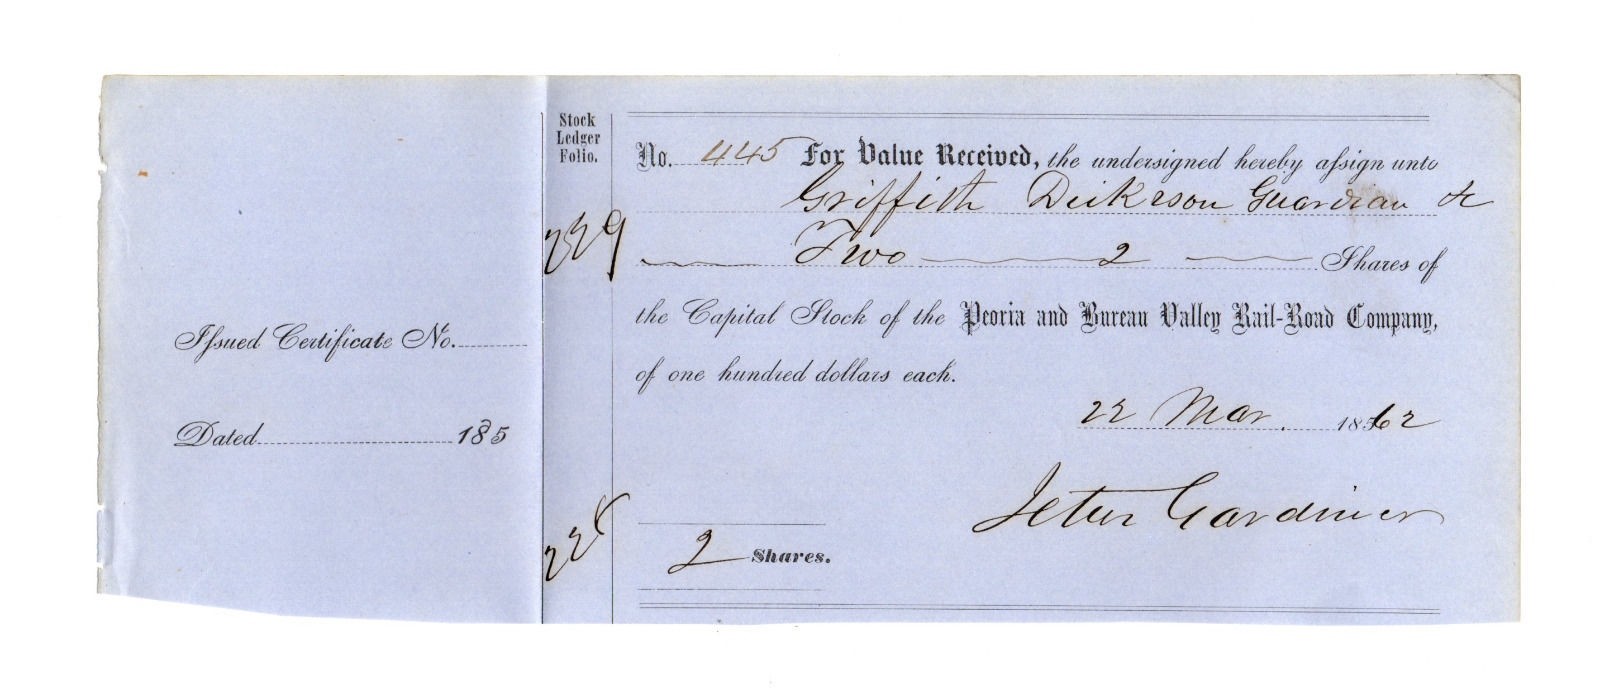 Stock
Ledger
Folio.
No. 445 For Value Received, the undersigned hereby assign unto
Griffith Dickerson Guardian &c
229
Two 2 Shares of
the Capital Stock of the Peoria and Bureau Valley Rail-Road Company,
of one hundred dollars each.
22 Mar. 1862
Gardiner
228
2 Shares.
Issued Certificate No.
Dated 185